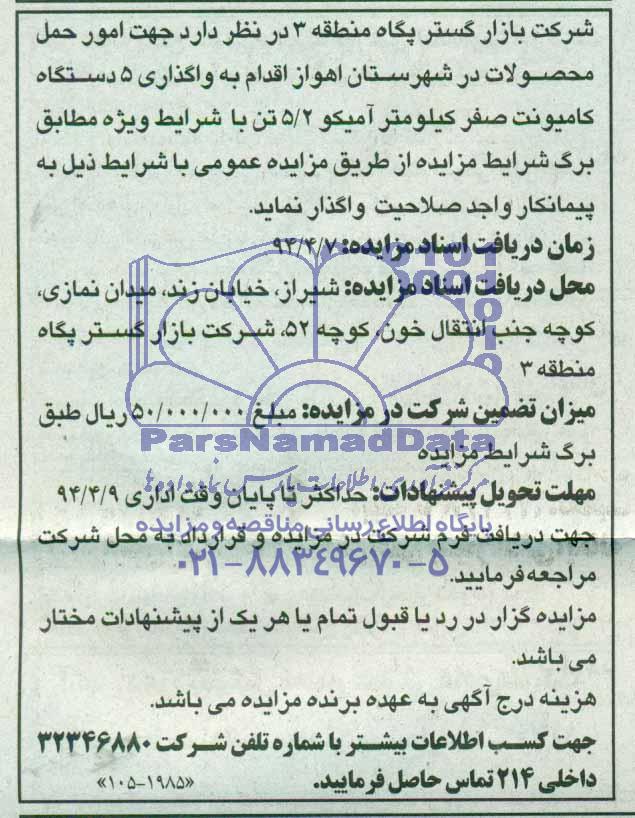 شرکت بازار گستر پگاه منطقه ۳ در نظر دارد جهت امور حمل
محصولات در شهرستان اهواز اقدام به واگذاری ۵ دستگاه
کامیونت صفر کیلومتر آمیکو ۵/۲ تن با شرایط ویژه مطابق
برگ شرایط مزایده از طریق مزایده عمومی با شرایط ذیل به
پیمانکار واجد صلاحیت واگذار نماید.
زمان دریافت اسناد مزایده: ۹۴/۴/۷
محل دریافت اسناد مزایده: شیراز، خیابان زند، میدان نمازی،
کوچه جنب انتقال خون، کوچه ۵۲، شرکت بازار گستر پگاه
منطقه ۳
میزان تضمین شرکت در مزایده: مبلغ ۵۰/۰۰۰/۰۰۰ ریال طبق
ParsNamadData
برگ شرایط مزایده
مهلت تحویل پیشنهادات: حداکثر تا پایان وقت اداری ۹۴/۴/۹
پایگاه اطلاع رسانی مناقصه و مزایده
جهت دریافت فرم شرکت در مزایده و قرارداد به محل شرکت
۰۲۱-۸۸۳۴۹۶۷۰-۵
مراجعه فرمایید.
مزایده گزار در رد یا قبول تمام یا هر یک از پیشنهادات مختار
می باشد.
هزینه درج آگهی به عهده برنده مزایده می باشد.
جهت کسب اطلاعات بیشتر با شماره تلفن شرکت ۳۲۳۴۶۸۸۰
داخلی ۲۱۴ تماس حاصل فرمایید.
«۱۰۵-۱۹۸۵»